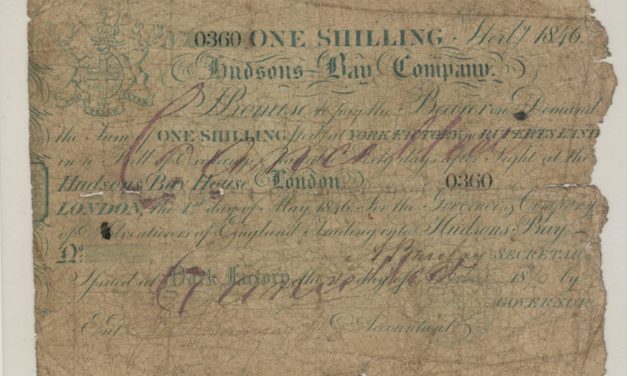 No 0360 ONE SHILLING Sterlg 1846
Hudsons Bay Company.
PRO PELLE CUTEM
I Promise to pay the Bearer on Demand
the Sum of ONE SHILLING Sterlg at YORK FACTORY in RUPERTS LAND
in a Bill of Exchange payable Sixty days after Sight at the
Hudsons Bay House London 0360
LONDON, the 1st day of May 1846. For the Governor & Company
of Adventurers of England trading into Hudsons Bay
No SECRETARY
Issued at York Factory the day of 18 by
GOVERNOR
Entd Accountant
Cancelled
Cancelled